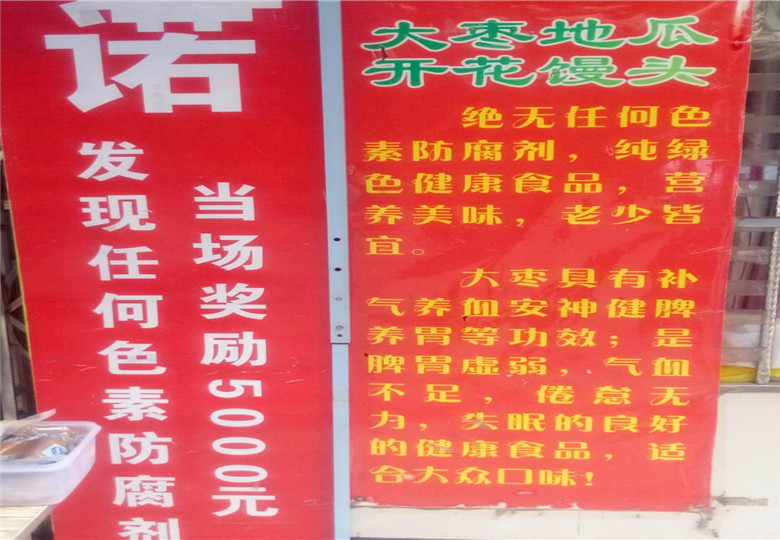 诺
发现任何色素防腐剂
当场奖励5000元
大枣地瓜
开花馒头
绝无任何色
素防腐剂，纯绿
色健康食品，营
养美味，老少皆
宜。
大枣具有补
气养血安神健脾
养胃等功效；是
脾胃虚弱，气血
不足，倦怠无
力，失眠的良好
的健康食品，适
合大众口味！